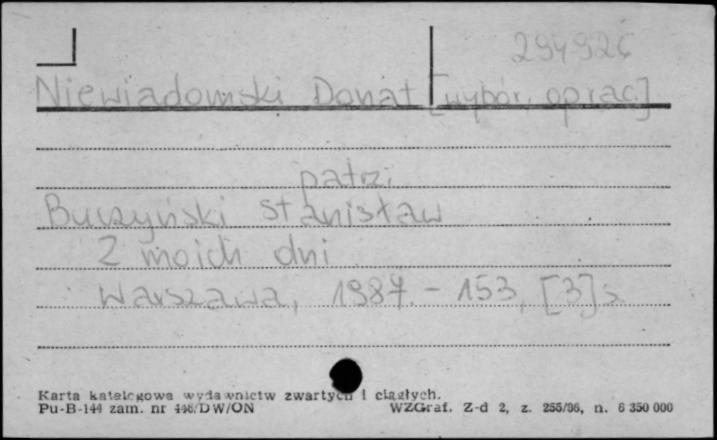 294926
Niewiadomski Donat [wybór, oprac]
patrz,
Buczyński Stanisław
Z moich dni
Warszawa, 1987. - 153, [3] s
Karta katalogowa wydawnictw zwartych i ciągłych.
Pu-B-144 zam. nr 448/DW/ON WZGraf. Z-d 2, z. 255/86, n. 6 350 000